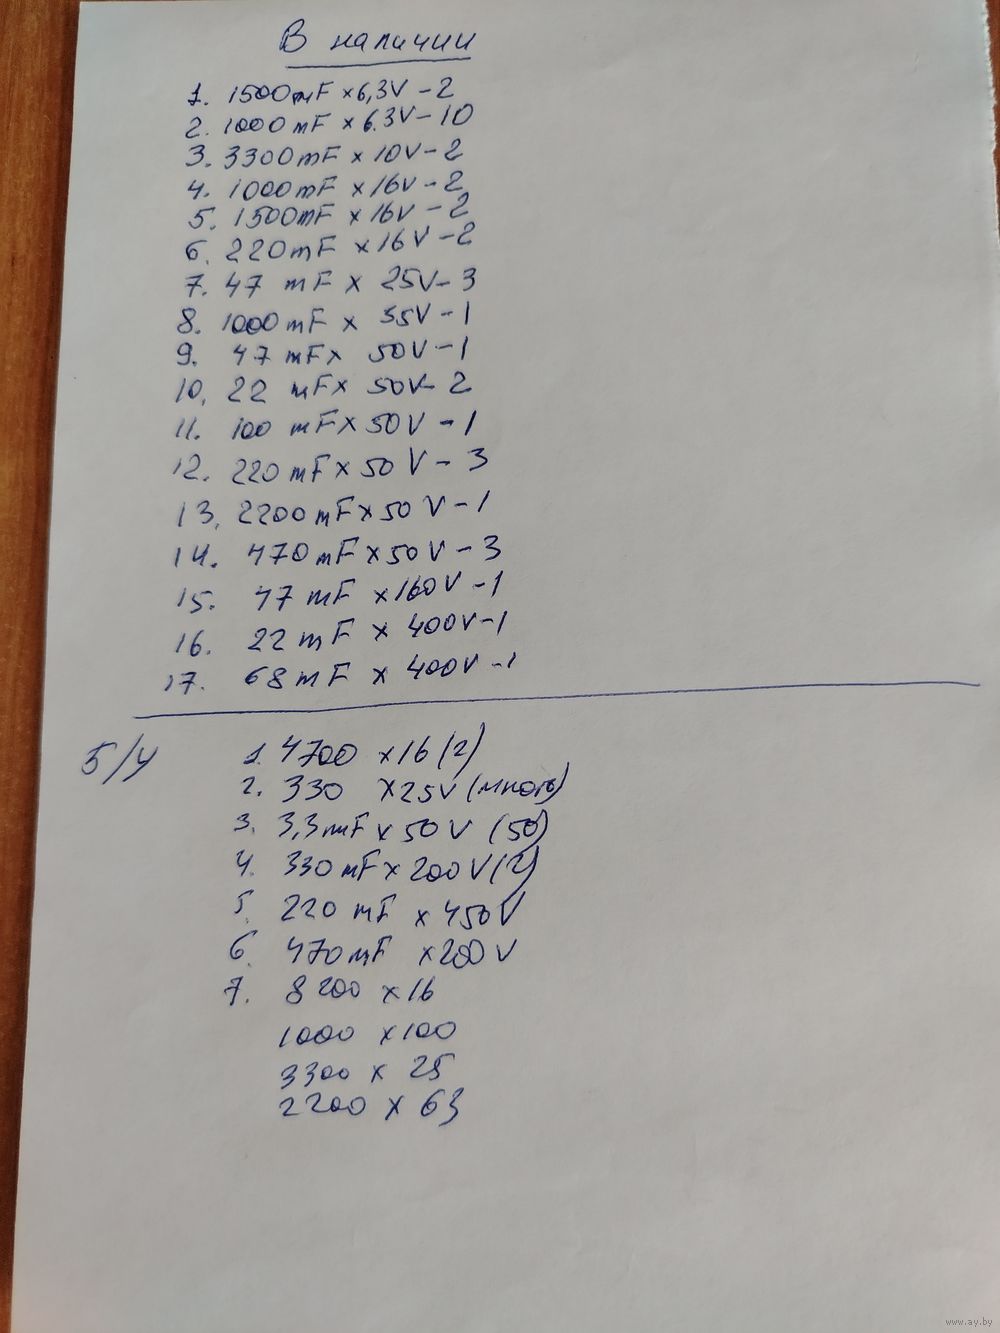 В наличии
1. 1500mF x 6,3V - 2
2. 1000mF x 6.3V - 10
3. 3300mF x 10V - 2
4. 1000mF x 16V - 2
5. 1500mF x 16V - 2
6. 220mF x 16V - 2
7. 47 mF x 25V - 3
8. 1000mF x 35V - 1
9. 47 mF x 50V - 1
10. 22 mF x 50V - 2
11. 100 mF x 50V - 1
12. 220mF x 50V - 3
13. 2200mF x 50V - 1
14. 470mF x 50V - 3
15. 47 mF x 160V - 1
16. 22mF x 400V - 1
17. 68mF x 400V - 1
Б/У
1. 4700 x 16 (2)
2. 330 x 25V (много)
3. 3,3mF x 50V (50)
4. 330mF x 200V (2)
5. 220 mF x 450V
6. 470mF x 200V
7. 8200 x 16
1000 x 100
3300 x 25
2200 x 63
www.ay.by